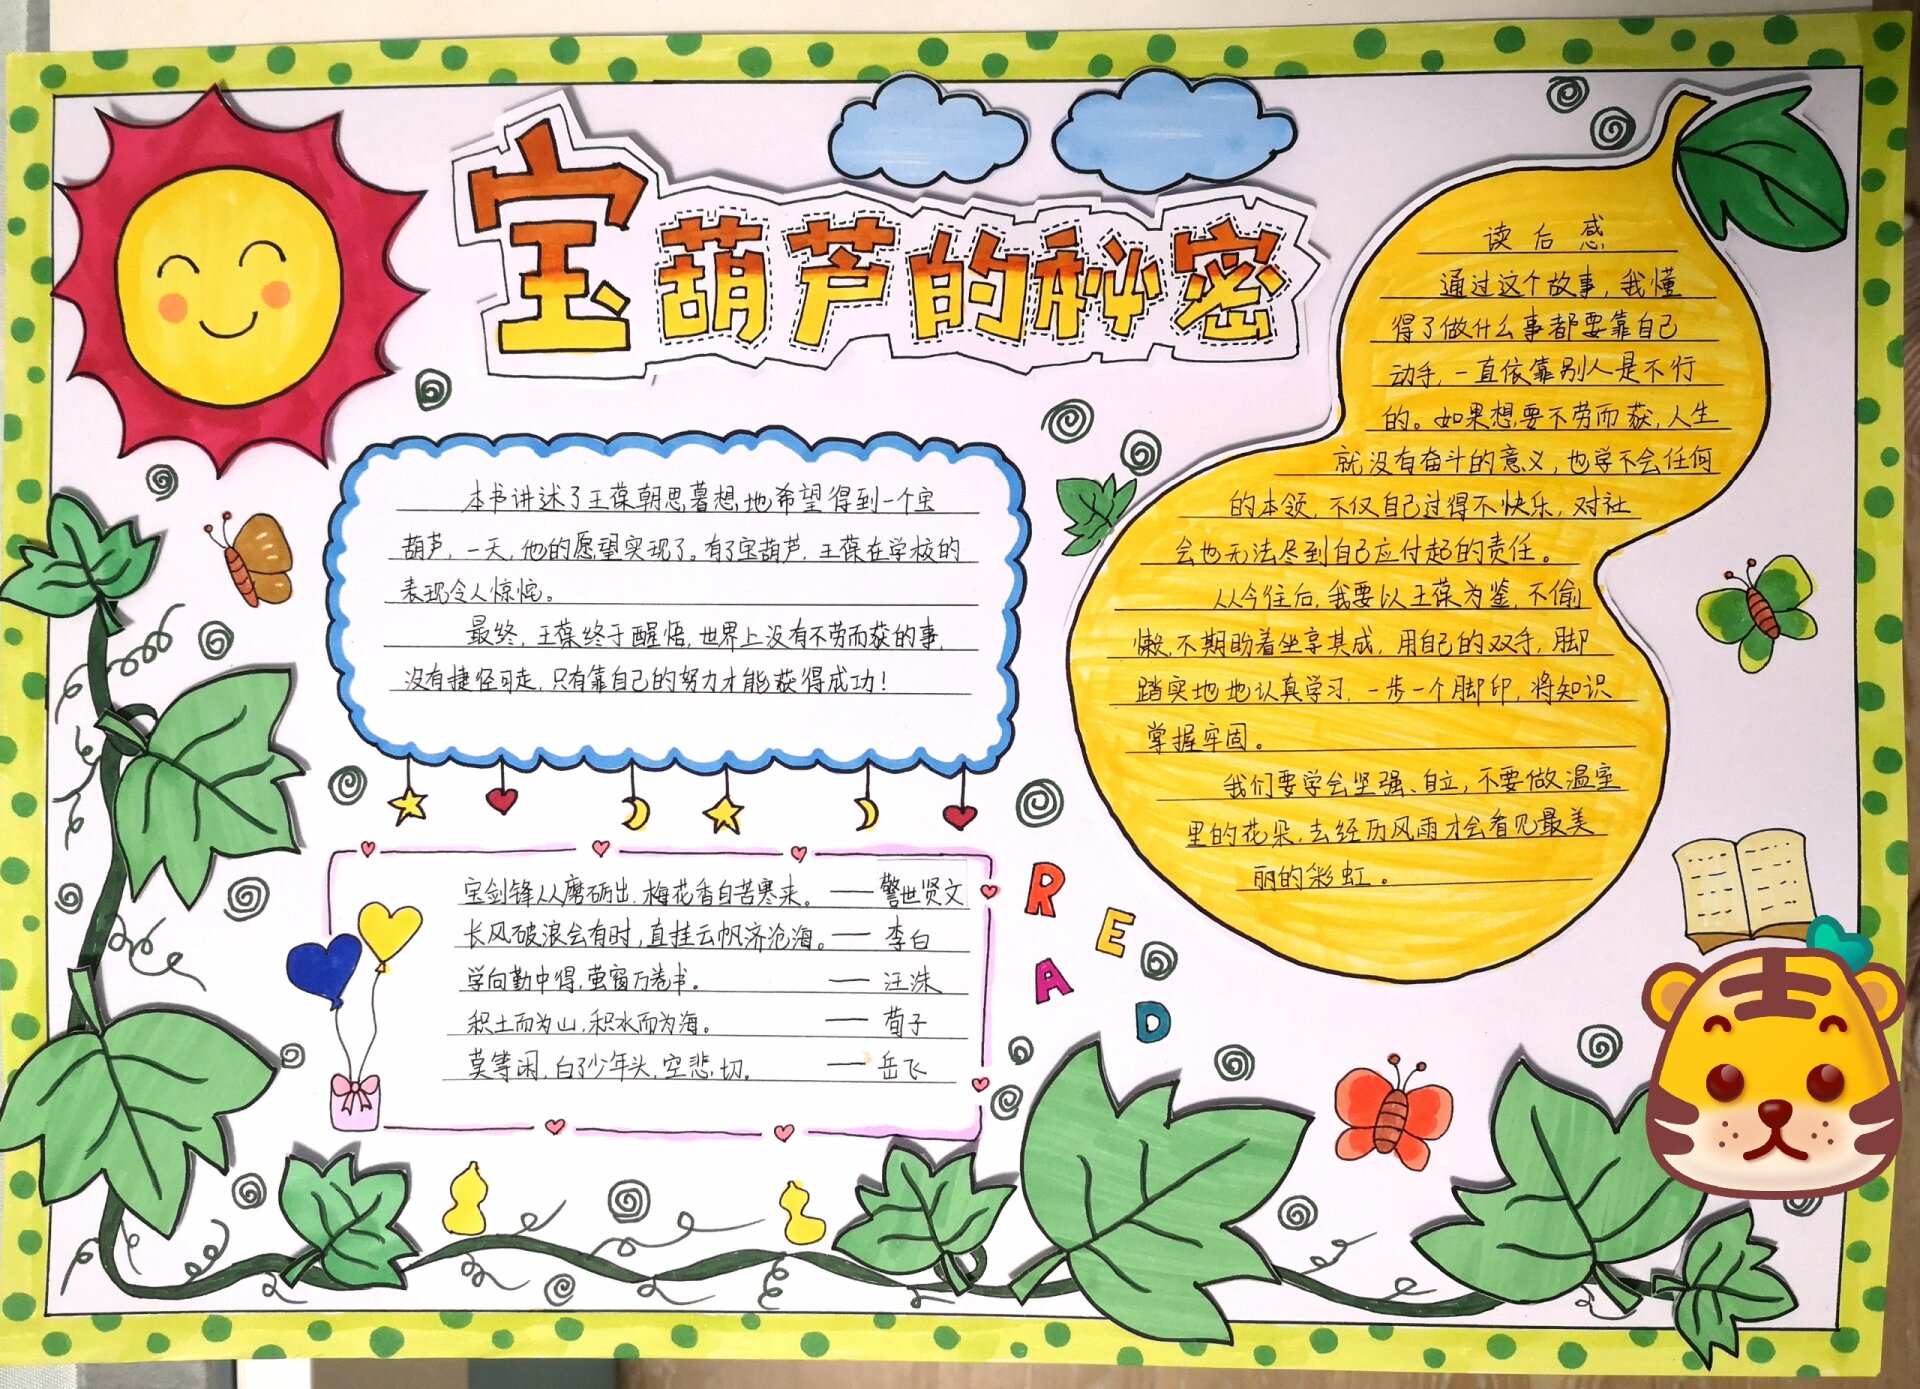 宝葫芦的秘密
本书讲述了王葆朝思暮想地希望得到一个宝
葫芦，一天，他的愿望实现了。有了宝葫芦，王葆在学校的
表现令人惊诧。
最终，王葆终于醒悟，世界上没有不劳而获的事，
没有捷径可走，只有靠自己的努力才能获得成功！
宝剑锋从磨砺出，梅花香自苦寒来。——警世贤文
长风破浪会有时，直挂云帆济沧海。——李白
学向勤中得，萤窗万卷书。——汪洙
积土而为山，积水而为海。——荀子
莫等闲，白了少年头，空悲切。——岳飞
读后感
通过这个故事，我懂
得了做什么事都要靠自己
动手，一直依靠别人是不行
的。如果想要不劳而获，人生
就没有奋斗的意义，也学不会任何
的本领，不仅自己过得不快乐，对社
会也无法尽到自己应付起的责任。
从今往后，我要以王葆为鉴，不偷
懒，不期盼着坐享其成，用自己的双手，脚
踏实地地认真学习，一步一个脚印，将知识
掌握牢固。
我们要学会坚强、自立，不要做温室
里的花朵，去经历风雨才会看见最美
丽的彩虹。
READ